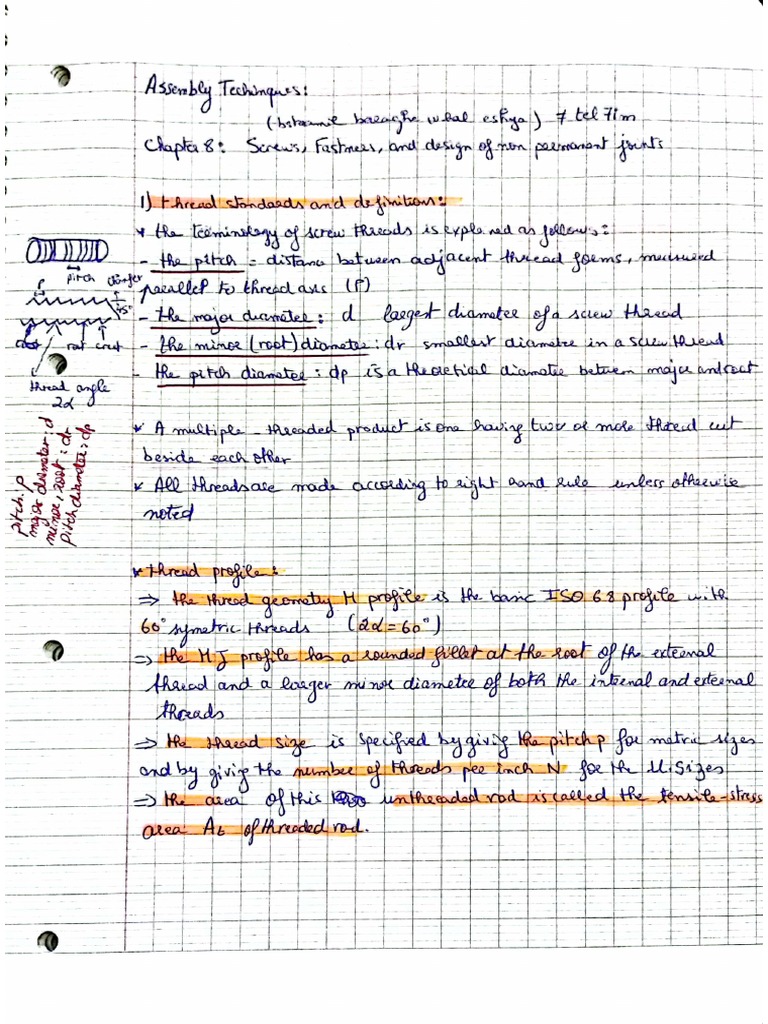 Assembly Techniques:
(bstaamil baraghe w bal eshya) 7 tel 7im
Chapter 8: Screws, Fastners, and design of non permanent joints
1) thread standards and definitions:
* the terminology of screw threads is explained as follows:
- the pitch = distance between adjacent thread forms, measured
parallel to thread axis (P)
- the major diameter: d largest diameter of a screw thread
- the minor (root) diameter: dr smallest diameter in a screw thread
- the pitch diameter: dp is a theoretical diameter between major and root
* A multiple-threaded product is one having two or more thread cut
beside each other
* All threads are made according to right hand rule unless otherwise
noted
* thread profile:
⇒ the thread geometry M profile is the basic ISO 68 profile with
60° symetric threads (2α=60°)
⇒ the MJ profile has a rounded fillet at the root of the external
thread and a larger minor diameter of both the internal and external
threads
⇒ the thread size is specified by giving the pitch p for metric sizes
and by giving the number of threads per inch N for the U.S sizes
⇒ the area of this unthreaded rod is called the tensile-stress
area At of threaded rod.
pitch
chamfer
P
45°
crest
root
crest
thread angle
2α
pitch: p
major diameter: d
minor, root: dr
pitch diameter: dp